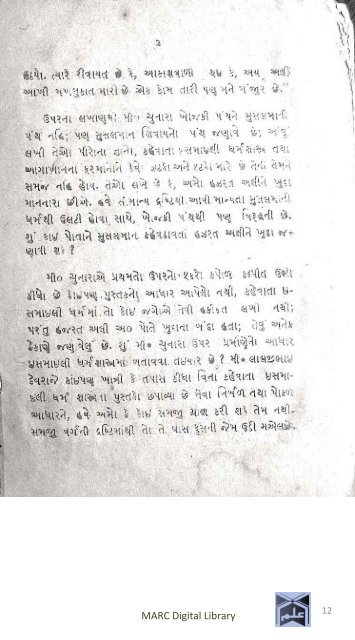 ૩
હૃદયો. ત્યારે રીવાયત છે કે, આકાશવાણી થઇ કે, અય અલી
આખી મખલુકાત મારી છે એક કામ તારી પણ મને મંજુર છે."
ઉપરના લખાણથી મી૦ ચુનારા ખોજકી પંથને મુસલમાની
પંથ નહિ; પણ મુસલમાન સિવાયનો પંથ જણાવે છે; આવું
લખી તેઓ પીરોના જ્ઞાનો, કહેવાતા ઇસમાઇલી ધર્મશાસ્ત્ર તથા
આગાખાનના ફરમાનોને કેવો ઝટકો અને ફટકો મારે છે તેની તેમને
સમજ નહિ હોય. તેઓ લખે છે કે, અમો હઝરત અલીને ખુદા
માનનારા છીએ. હવે સામાન્ય દ્રષ્ટિથી આવી માન્યતા મુસલમાની
ધર્મથી ઉલટી હોવા સાથે, ખોજકી પંથથી પણ વિરૂદ્ધની છે,
શું કોઇ પોતાને મુસલમાન કહેવડાવતાં હઝરત અલીને ખુદા જ-
ણાવી શકે ?
મી૦ ચુનારાએ પ્રથમતો ઉપરનો ફકરો કપોળ કલ્પીત ઉભો
કીધો છે કોઇપણ પુસ્તકનો આધાર આપેલો નથી, કહેવાતા ઇ-
સમાઇલી ધર્મમાં તો કોઇ જગોએ તેવી હકીકત લખી નથી;
પરંતુ હઝરત અલી અ૦ પોતે ખુદાના બંદા હતા; તેવું અનેક
ઠેકાણે જણાવેલું છે. શું મી૦ ચુનારા ઉપર પ્રમાણેનો આધાર
ઇસમાઇલી ધર્મશાસ્ત્રમાં બતાવવા તઇયાર છે ? મી૦ લાલજીભાઇ
દેવરાજે કાંઇપણ ખામી કે તપાસ કીધા વિના કહેવાતા ઇસમા-
ઇલી ધર્મ શાસ્ત્રના પુસ્તકો છપાવ્યા છે તેવા નિર્બળ તથા પોકળ
આધારને, હવે અમો કે કોઇ સમજી ગ્રાહ્ય કરી શકે તેમ નથી.
સમજી વર્ગની દ્રષ્ટિમાંથી તો તે ઘાસ ફુસની જેમ ઉડી ગએલાછે.
MARC Digital Library
12